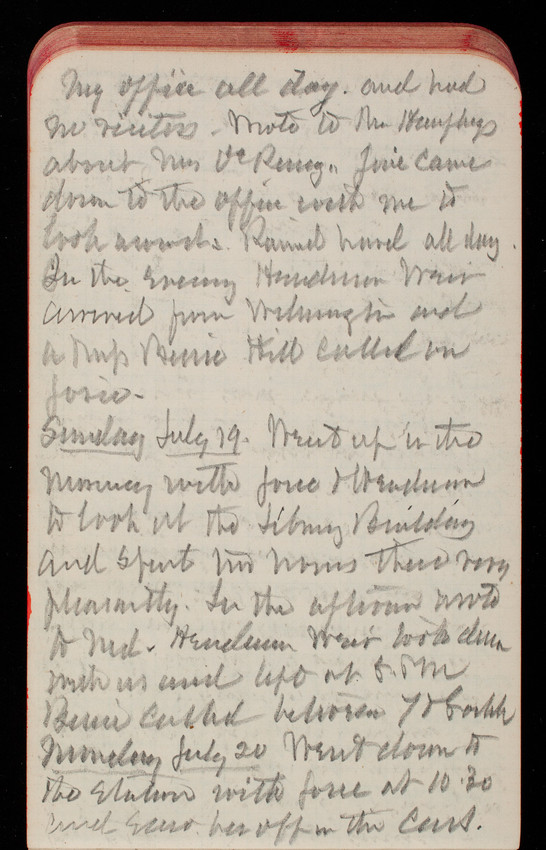 My office all day. and had
no visitors. Wrote to Mr Humphrys
about Mrs Josie came
down to the office with me to
look around. Rained hard all day.
In the evening Henderson Weir
arrived from Wilmington and
a Miss Bessie Hill called on
Josie.
Sunday July 19. Went up in the
morning with Josie & Henderson
to look at the Library Building
and spent two hours there very
pleasantly. In the afternoon wrote
to Ned. Henderson Weir took dinner
with us and left at 8. PM
Bessie called between 7 &
Monday July 20 Went down to
the Station with Josie at 10.30
and saw her off in the Cars.